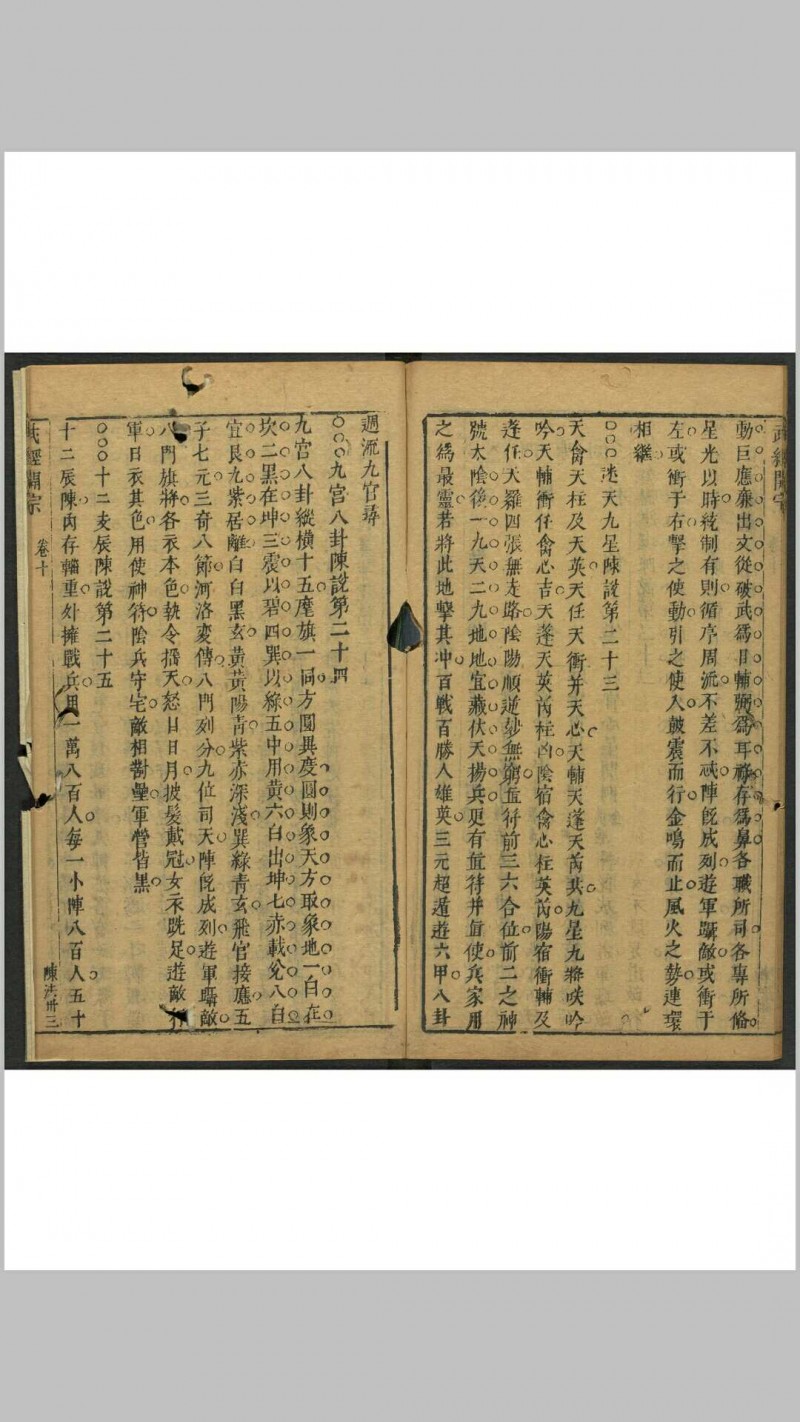 武經開宗
動巨應廉出文從破武爲目輔弼爲耳祿存爲鼻各職所司各專所脩
星光以時統制有則循序周流不差不忒陣旣成列遊軍躡敵或衝于
左或衝于右擊之使動引之使入鼓震而行金鳴而止風火之勢連環
相繼
迷天九星陳說第二十三
天禽天柱及天英天任天衝并天心天輔天蓬天芮共九星九將唉吟
吟天輔衝任禽心吉天蓬天英芮柱凶陰宿禽心柱英芮陽宿衝輔及
蓬任天羅四張無走路陰陽順逆妙無窮直符前三六合位前二之神
號太陰後一九天二九地地宜藏伏天揚兵更有直符并直使兵家用
之爲最靈若將此地擊其冲百戰百勝人雄英三元超遁遊六甲八卦
週流九宮尋
九宮八卦陳說第二十四
九宮八卦縱橫十五麾旗一同方圓異度圓則象天方取象地一白在
坎二黑在坤三震以碧四巽以綠五中用黃六白出坤七赤載兌八白
宜艮九紫居離白白黑玄黃黃陽青紫赤深淺巽綠青玄飛宮接應五
子七元三奇八節河洛變傳八門列分九位司天陣旣成列遊軍躡敵
八門旗將各衣本色執令播天怒日日月披髮戴冠女示跣足遊敵
軍日衣其色用使神符陰兵守宅敵相對壘軍營皆黑
十二支辰陳說第二十五
十二辰陳內存輜重外擁戰兵用一萬八百人每一小陣八百人五十
武經開宗
卷十
陳法卅三